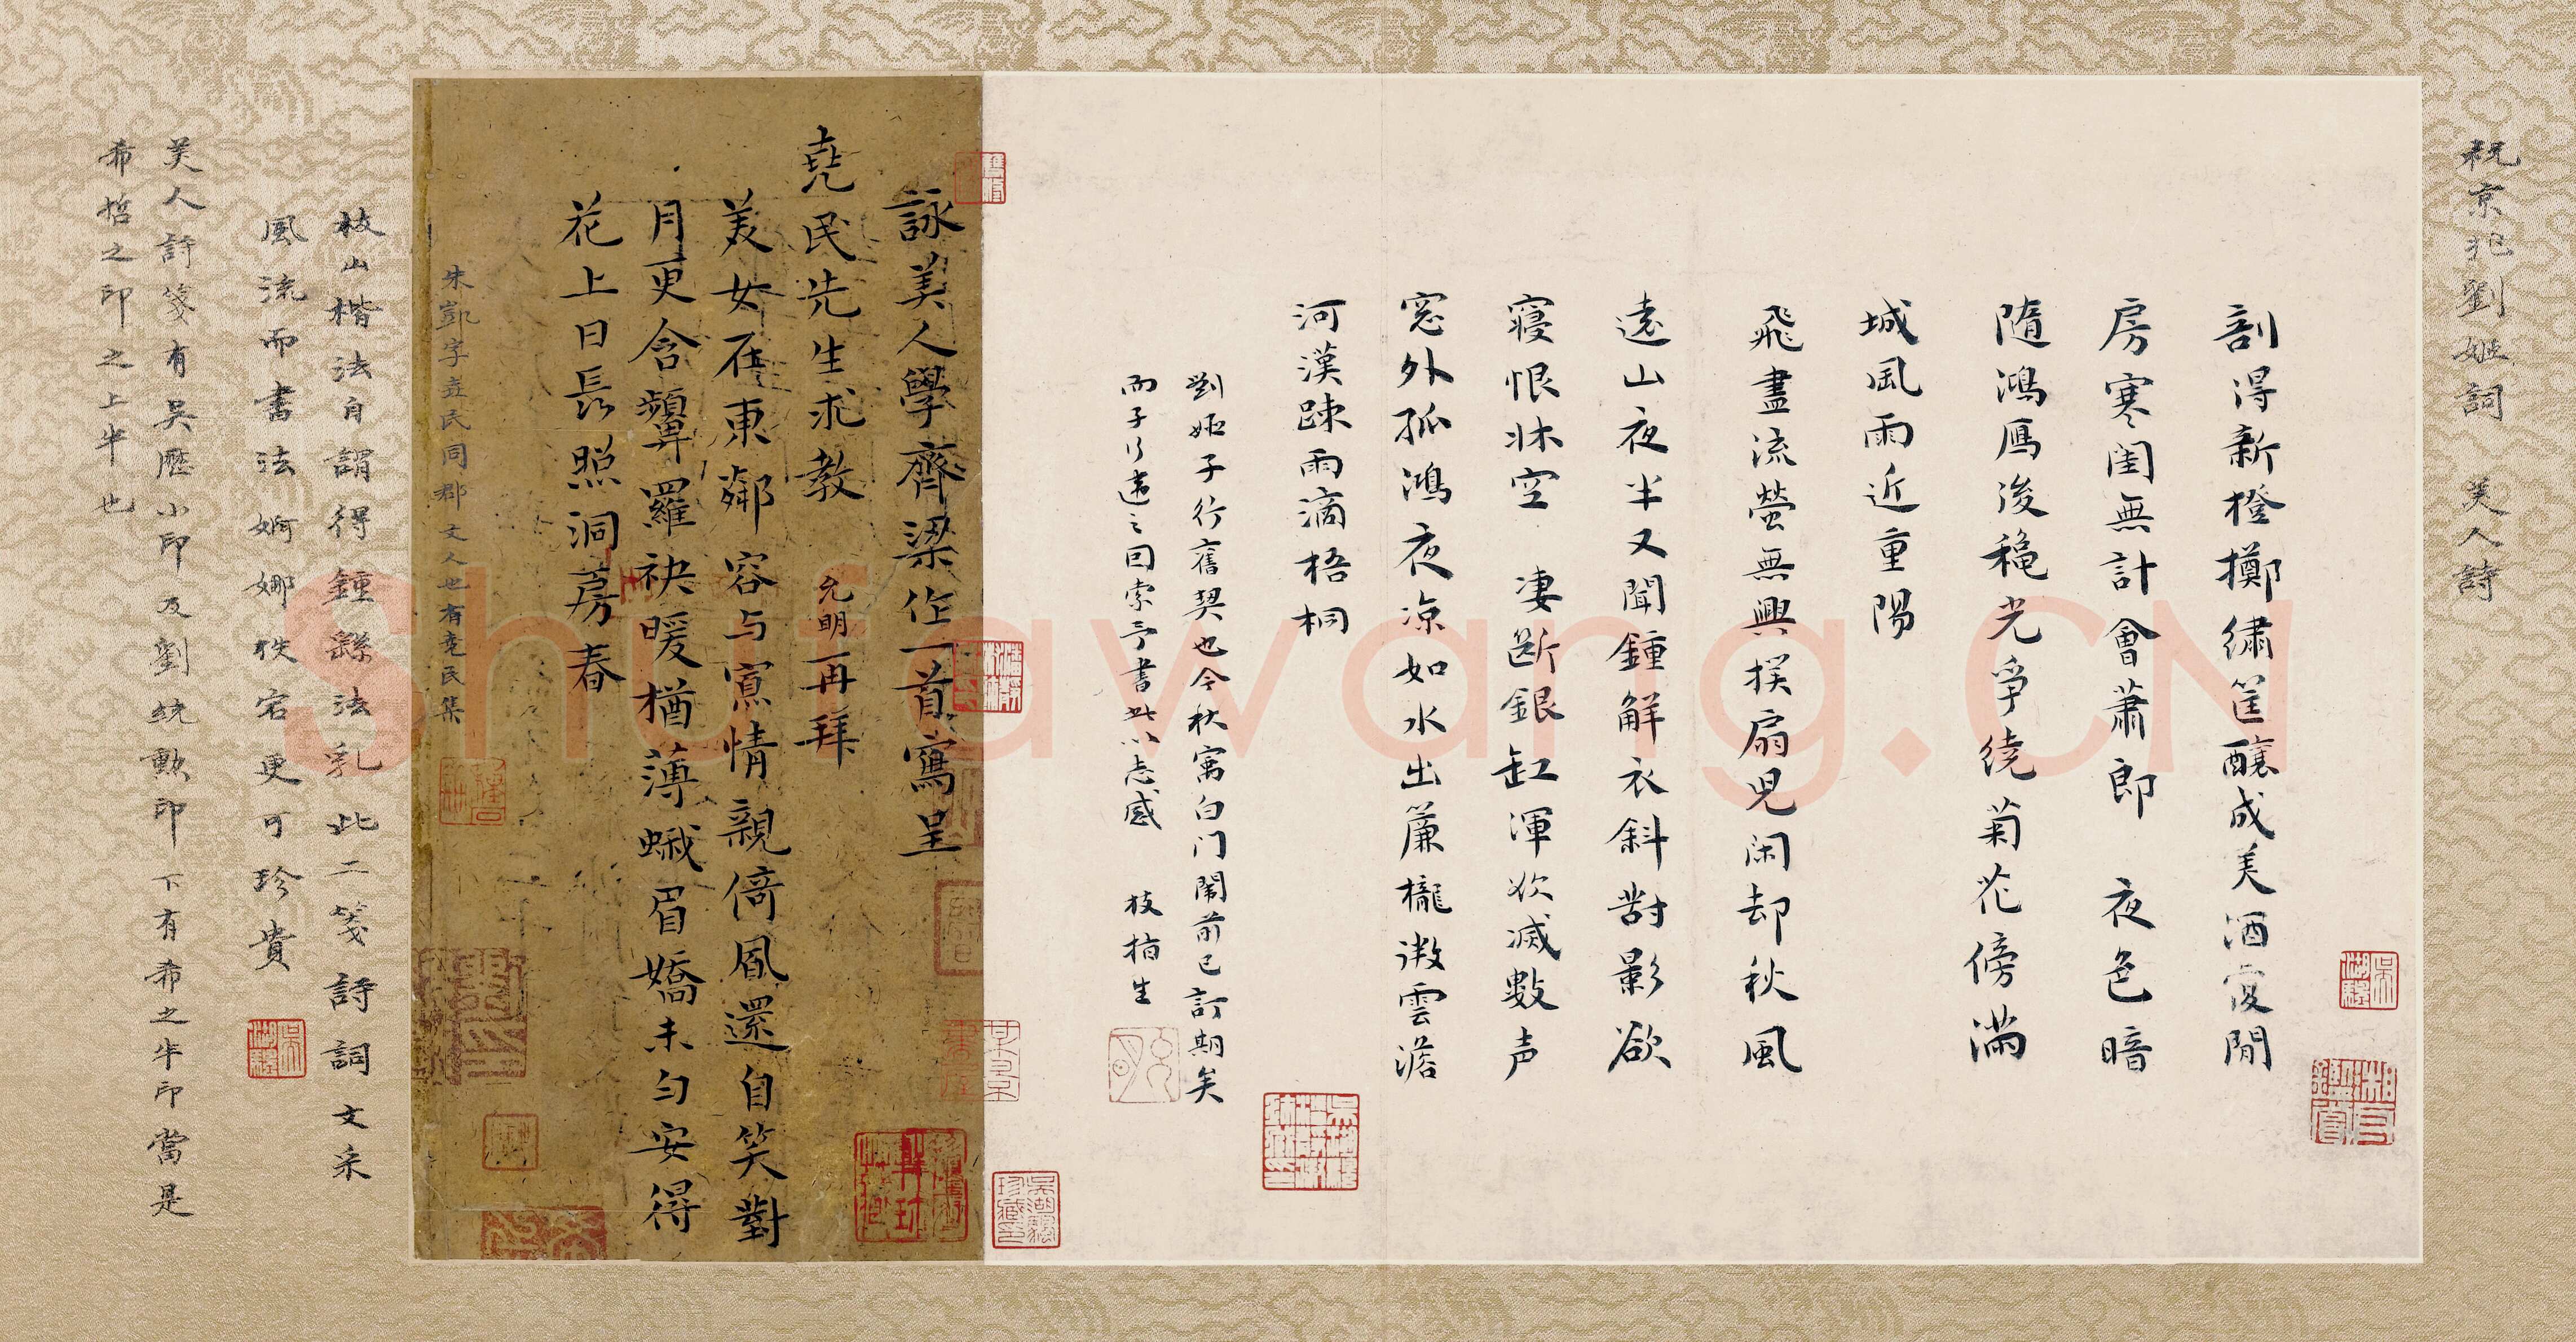 祝京兆劉姬詞 美人詩
剖得新橙擲繡筐釀成美酒復閒
房寒閨無計會蕭郎 夜色暗
隨鴻鴈後穐光爭繞菊花傍滿
城風雨近重陽
飛盡流螢無興撲扇兒閑却秋風
遠山夜半又聞鍾解衣斜對影欲
寢恨牀空 凄斷銀缸渾欲滅數声
窓外孤鴻夜凉如水出簾櫳微雲澹
河漢疎雨滴梧桐
劉姬子行舊契也今秋寓白门闈前已訂期矣
而子行違之回索予書此以志感 枝指生
詠美人學齊梁作一首寫呈
堯民先生求教 允明再拜
美女在東鄰容与寡情親倚風還自笑對
月更含顰羅袂暖猶薄蛾眉嬌未匀安得
花上日長照洞房春
朱凱字堯民同郡文人也有堯民集
枝山楷法自謂得鍾繇法乳此二箋詩詞文采
風流而書法婀娜秩宕更可珍貴
美人詩箋有吳歷小印及劉統勳印下有希之半印當是
希哲之印之上半也
吳湖驪
吳湖颿珍藏印
Shufawang.CN